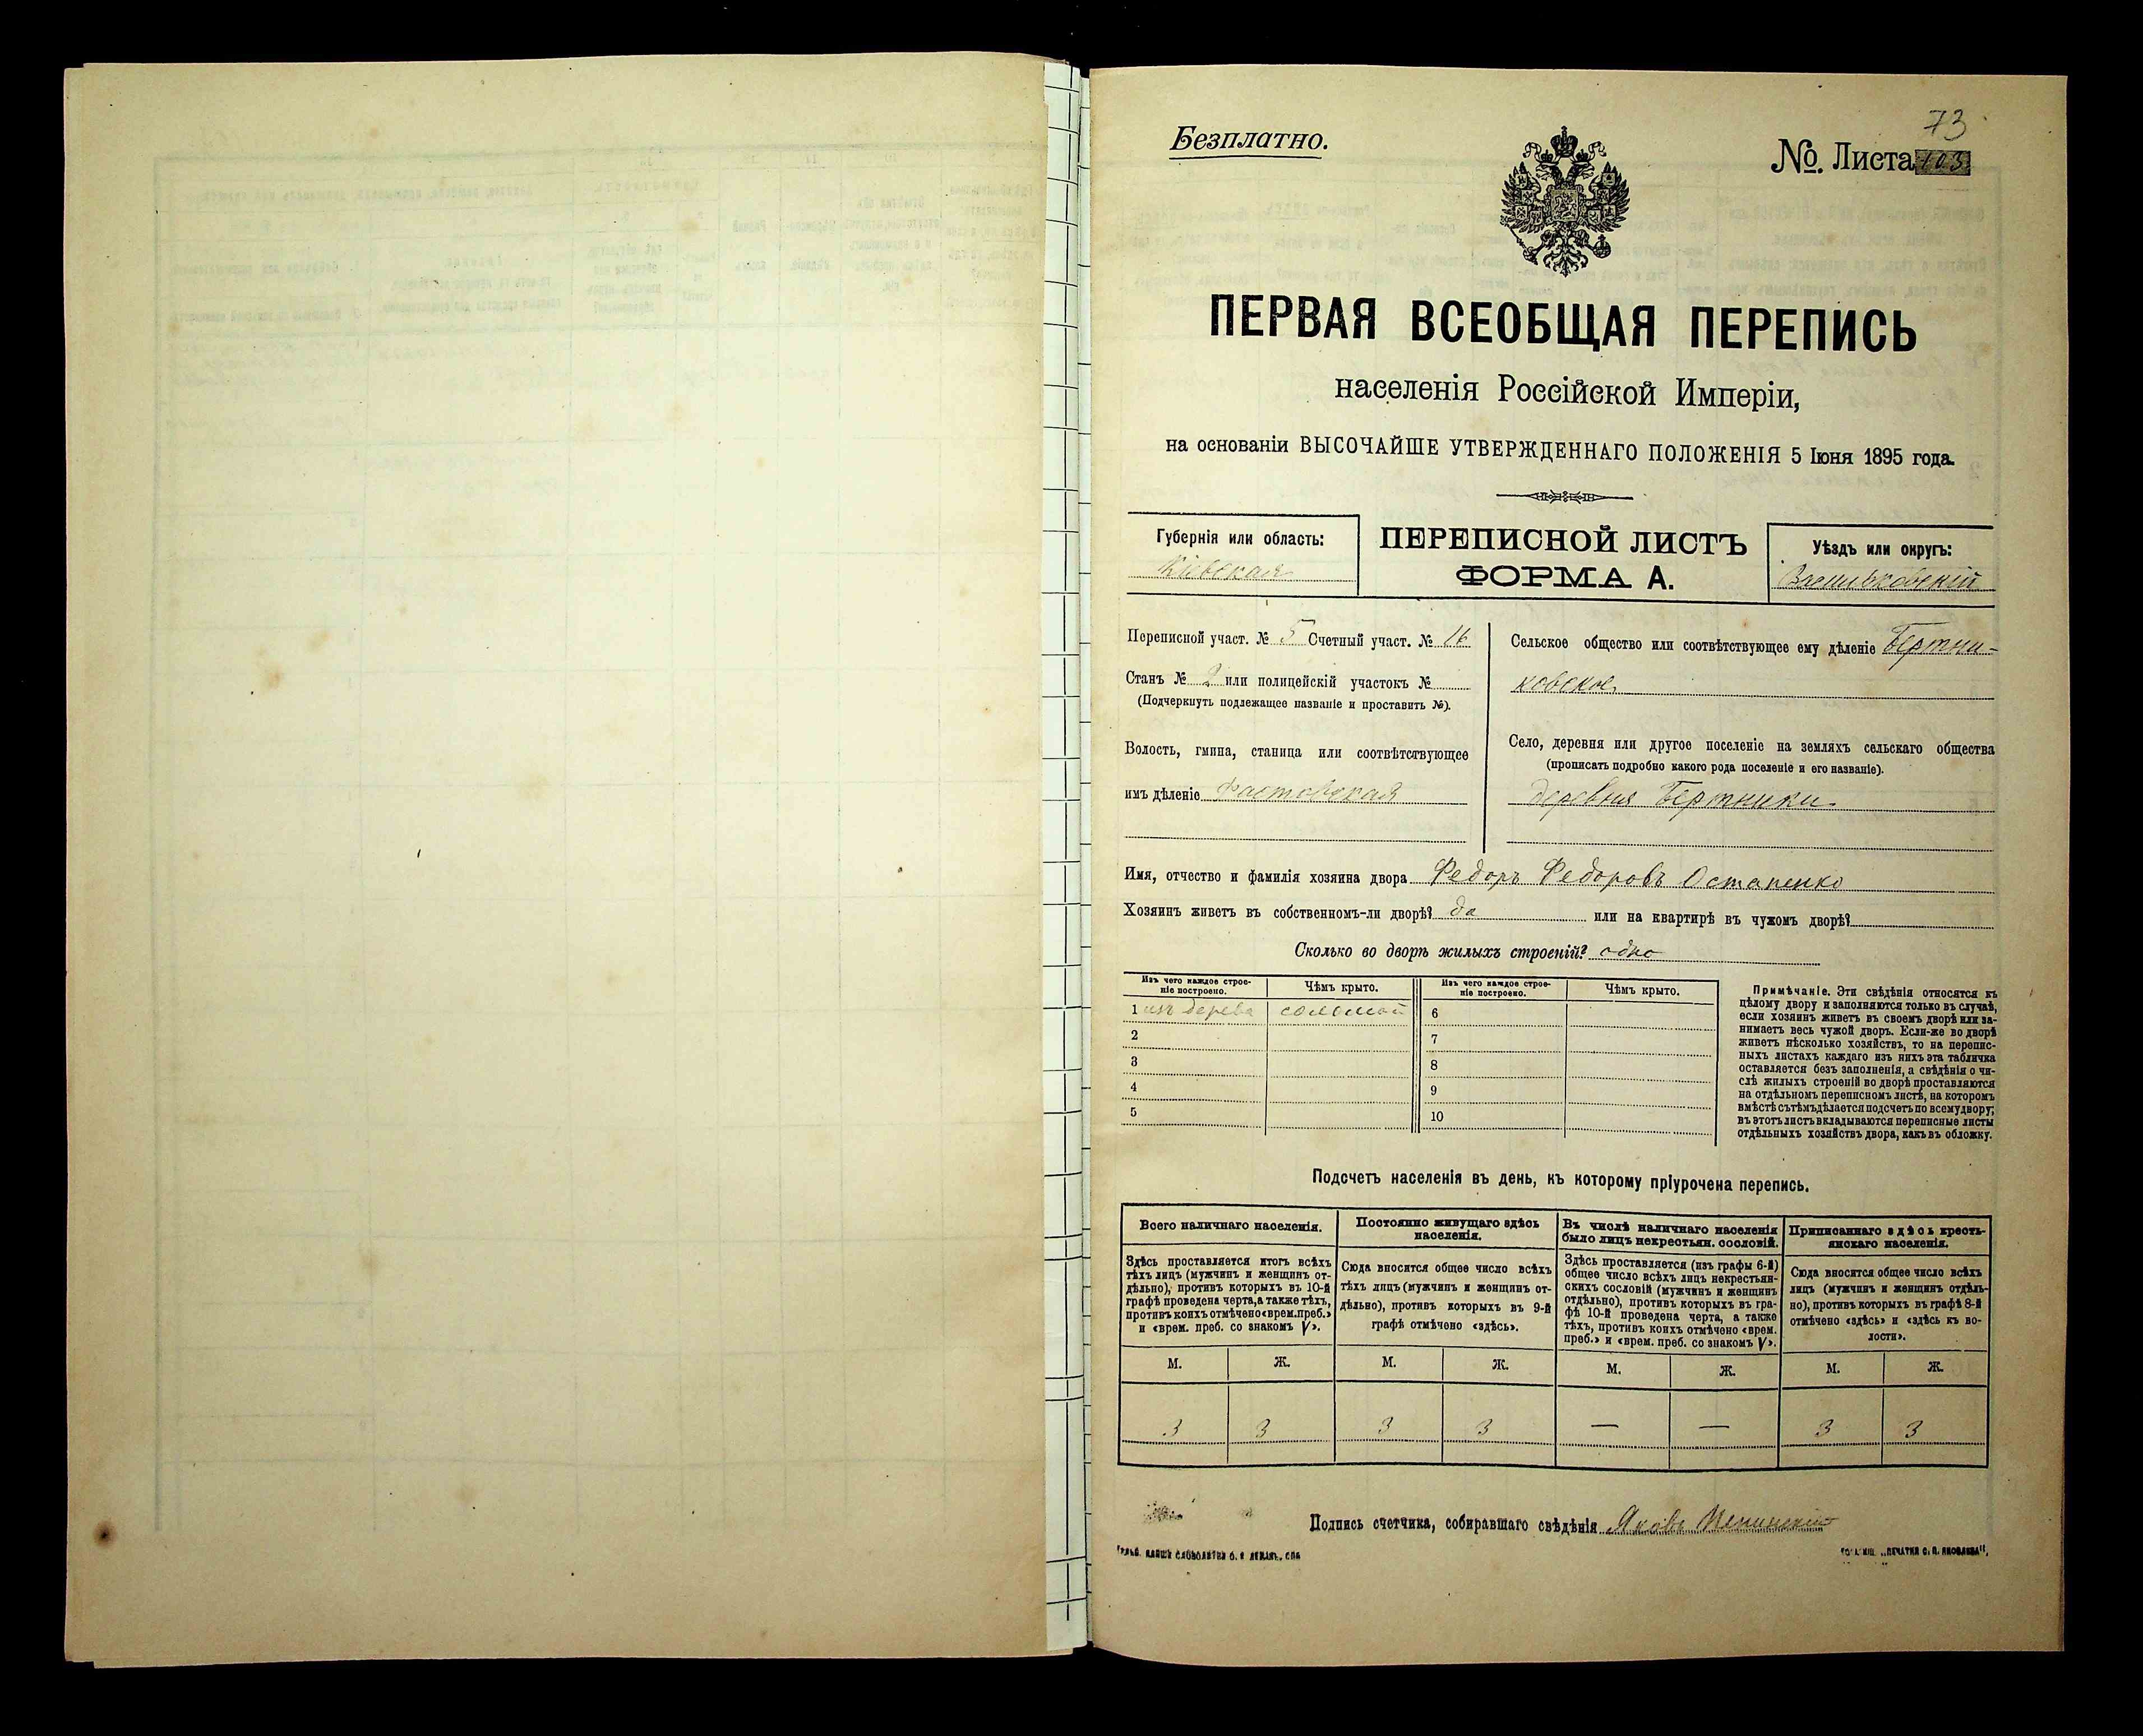 73
Безплатно.
№. Листа 103
ПЕРВАЯ ВСЕОБЩАЯ ПЕРЕПИСЬ
населенія Россійской Имперіи,
на основаніи ВЫСОЧАЙШЕ УТВЕРЖДЕННАГО ПОЛОЖЕНІЯ 5 Іюня 1895 года.
Губернія или область:
Кіевская
ПЕРЕПИСНОЙ ЛИСТЪ
ФОРМА А.
Уѣздъ или округъ:
Васильковскій
Переписной участ. № 5 Счетный участ. № 16
Станъ № 2 или полицейскій участокъ №
(Подчеркнуть подлежащее названіе и проставить №).
Волость, гмина, станица или соотвѣтствующее
имъ дѣленіе Фастовская
Сельское общество или соотвѣтствующее ему дѣленіе Бертни-
ковское
Село, деревня или другое поселеніе на земляхъ сельскаго общества
(прописать подробно какого рода поселеніе и его названіе).
деревня Бертники
Имя, отчество и фамилія хозяина двора Федоръ Федоровъ Остапенко
Хозяинъ живетъ въ собственномъ-ли дворѣ? да или на квартирѣ въ чужомъ дворѣ?
Сколько во дворѣ жилыхъ строеній? одно
Изъ чего каждое строе-
ніе построено.
Чѣмъ крыто.
Изъ чего каждое строе-
ніе построено.
Чѣмъ крыто.
1 изъ дерева соломой 6
2 7
3 8
4 9
5 10
Примѣчаніе. Эти свѣдѣнія относятся къ
цѣлому двору и заполняются только въ случаѣ,
если хозяинъ живетъ въ своемъ дворѣ или за-
нимаетъ весь чужой дворъ. Если-же во дворѣ
живетъ нѣсколько хозяйствъ, то на перепис-
ныхъ листахъ каждаго изъ нихъ эта табличка
оставляется безъ заполненія, а свѣдѣнія о чи-
слѣ жилыхъ строеній во дворѣ проставляются
на отдѣльномъ переписномъ листѣ, на которомъ
вмѣстѣ съ тѣмъ дѣлается подсчетъ по всему двору;
въ этотъ листъ вкладываются переписные листы
отдѣльныхъ хозяйствъ двора, какъ въ обложку.
Подсчетъ населенія въ день, къ которому пріурочена перепись.
Всего наличнаго населенія.
Здѣсь проставляется итогъ всѣхъ
тѣхъ лицъ (мужчинъ и женщинъ от-
дѣльно), противъ которыхъ въ 10-й
графѣ проведена черта, а также тѣхъ,
противъ коихъ отмѣчено «врем. преб.»
и «врем. преб. со знакомъ V».
Постоянно живущаго здѣсь
населенія.
Сюда вносится общее число всѣхъ
тѣхъ лицъ (мужчинъ и женщинъ от-
дѣльно), противъ которыхъ въ 9-й
графѣ отмѣчено «здѣсь».
Въ числѣ наличнаго населенія
было лицъ некрестьян. сословій.
Здѣсь проставляется (изъ графы 6-й)
общее число всѣхъ лицъ некрестьян-
скихъ сословій (мужчинъ и женщинъ
отдѣльно), противъ которыхъ въ гра-
фѣ 10-й проведена черта, а также
тѣхъ, противъ коихъ отмѣчено «врем.
преб.» и «врем. преб. со знакомъ V».
Приписаннаго здѣсь кресть-
янскаго населенія.
Сюда вносится общее число всѣхъ
лицъ (мужчинъ и женщинъ отдѣль-
но), противъ которыхъ въ графѣ 8-й
отмѣчено «здѣсь» и «здѣсь къ во-
лости».
М. Ж. М. Ж. М. Ж. М. Ж.
3 3 3 3 — — 3 3
Подпись счетчика, собиравшаго свѣдѣнія Яковъ